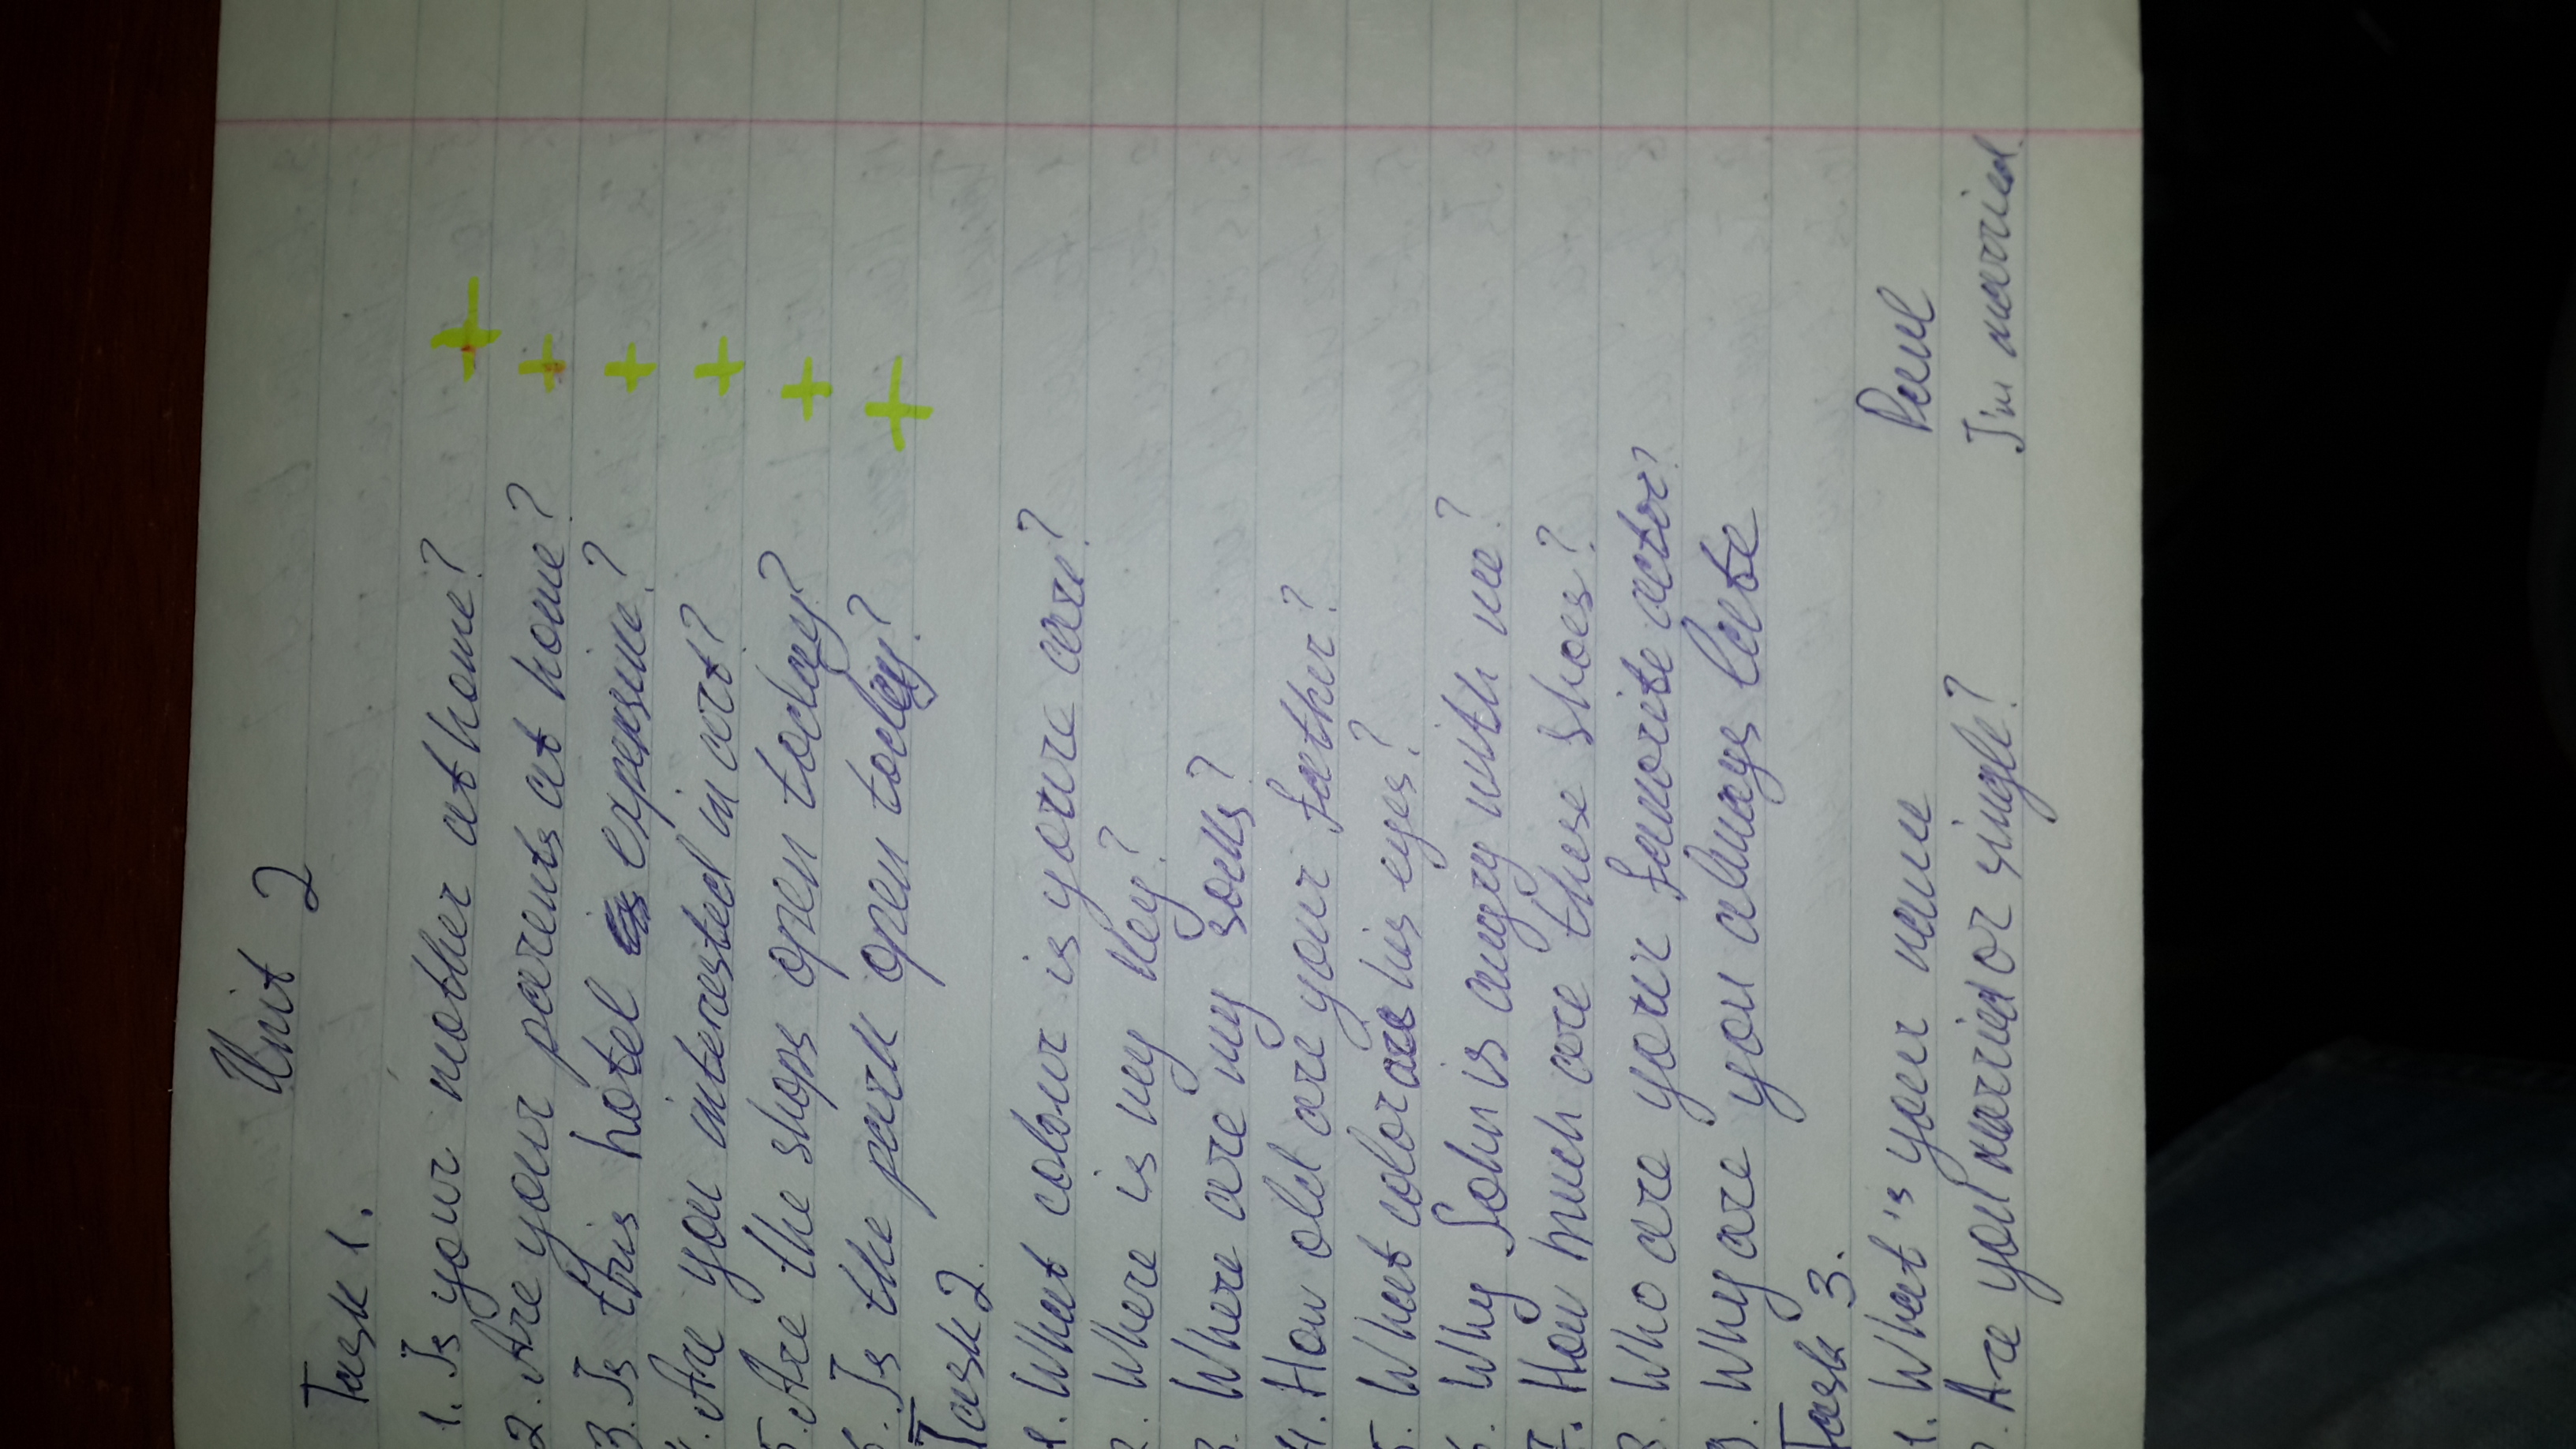 Unit 2
Task 1.
1. Is your mother at home? +
2. Are your parents at home? +
3. Is this hotel expensive? +
. Are you interested in art? +
5. Are the shops open today? +
6. Is the park open today? +
Task 2.
1. What colour is youre care?
2. Where is my key?
3. Where are my socks?
4. How old are your father?
5. What color are his eyes?
6. Why John is angry with me?
7. How much are these shoes?
8. Who are your favorite actor?
9. Why are you always late
Task 3.
1. What's your name Paul
. Are you married or single? I'm married.